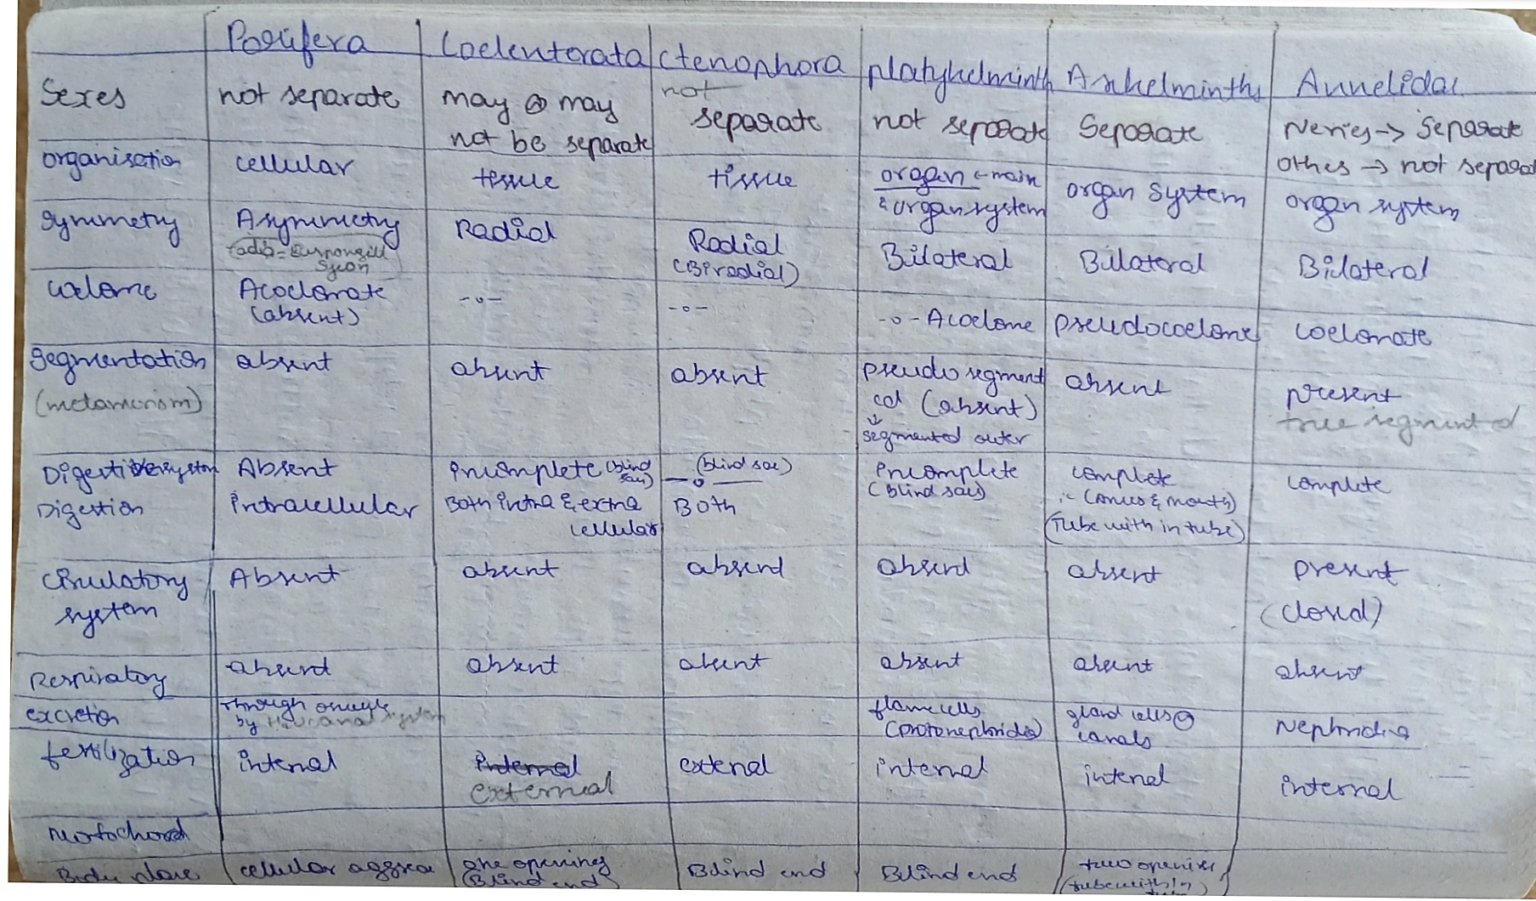 Porifera Coelenterata Ctenophora Platyhelminth Ashelminths Annelidal
Sexes not separate may or may not be separate not separate not separate Separate Neries → Separate
Othes → not separat
Organisation cellular tissue tissue organ ← main & organ system organ system organ system
Symmetry Asymmetry Radial Radial (Biradial) Bilateral Bilateral Bilateral
radia= Syon
Coelome Acoelomate (absent) -o- -o- -o- Acoelome pseudocoelome coelomate
Segmentation (metamerism) absent absent absent pseudo segment ed (absent) absent present
↓ segmented outer true segmented
Digestive system Absent incomplete (blind sac) -o- (blind sac) incomplete (blind sac) complete complete
Digestion intracellular Both intra & extra cellular Both i.e (anus & mouth)
(Tube with in tube)
Circulatory system Absent absent absent absent absent present (closed)
Respiratory absent absent absent absent absent absent
excretion through by canal system flame cells (protonephridia) gland cells canals Nephridia
fertilization internal external external internal internal internal
Nortochord
Body plane cellular aggrea one opening (Blind end) Blind end Blind end two opening (tube within